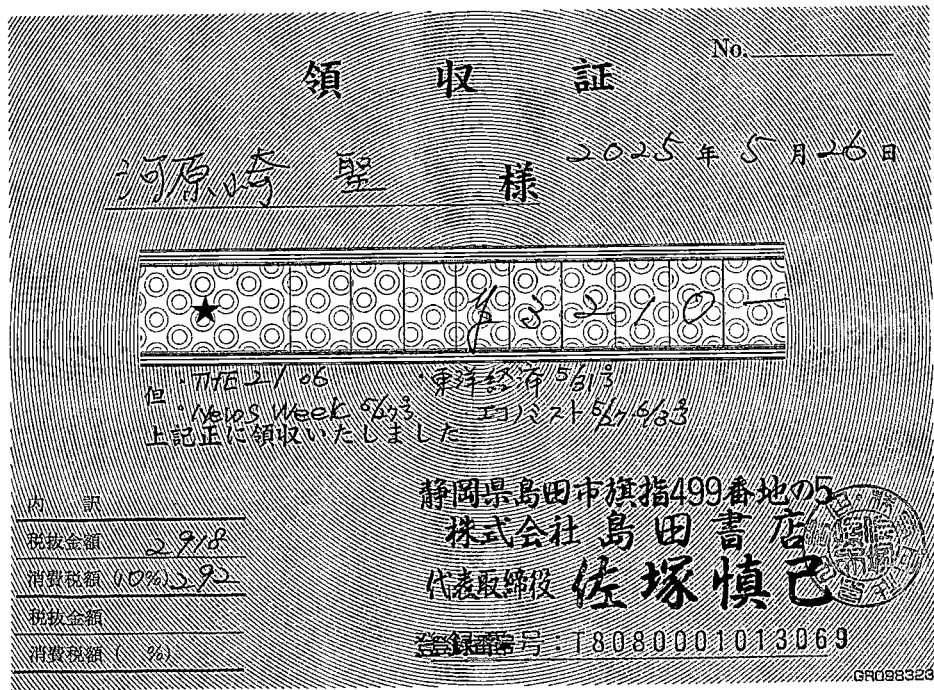 No.
領収証
2025年5月26日
河原崎 聖 様
★ ¥3210-
但 ・THE21 06 ・東洋経済 5/31号
・News Week 5/27号 エコノミスト 5/27・6/3号
上記正に領収いたしました
内訳
税抜金額 2918
消費税額(10%) 292
税抜金額
消費税額( %)
静岡県島田市旗指499番地の5
株式会社 島田書店
代表取締役 佐塚慎己
登録番号:T8080001013069
GR098323